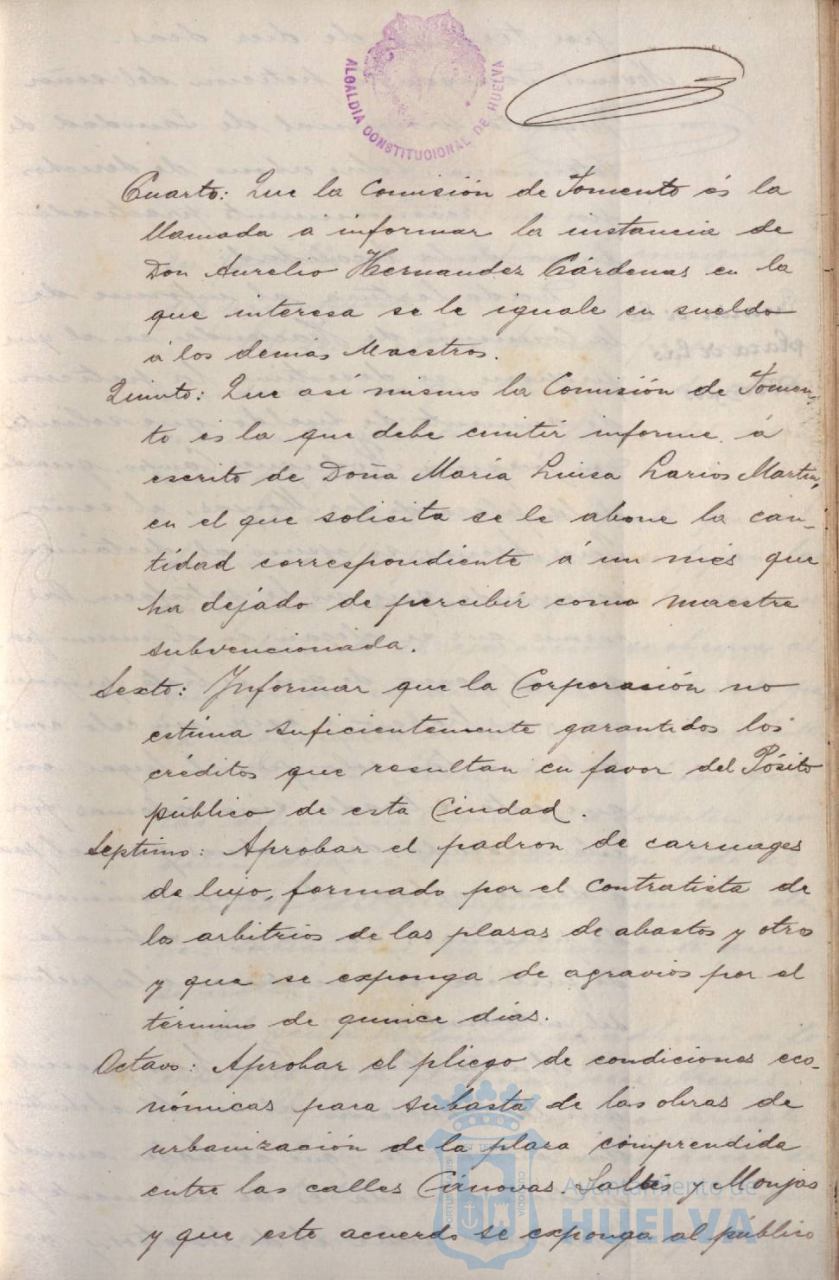 ALCALDIA CONSTITUCIONAL DE HUELVA
Cuarto: Que la Comisión de Fomento és la
llamada á informar la instancia de
Don Aurelio Hernandez Cárdenas en la
que interesa se le iguale en sueldo
á los demás Maestros.
Quinto: Que así mismo la Comisión de Fomen-
to és la que debe emitir informe á
escrito de Doña María Luisa Larios Martin,
en el que solicita se le abone la can-
tidad correspondiente á un més que
ha dejado de percibir como maestra
subvencionada.
Sexto: Informar que la Corporación no
estima suficientemente garantidos los
créditos que resultan en favor del Pósito
público de esta Ciudad.
Septimo: Aprobar el padron de carruages
de lujo, formado por el contratista de
los arbitrios de las plazas de abastos y otros
y que se exponga de agravios por el
término de quince días.
Octavo: Aprobar el pliego de condiciones eco-
nómicas para subasta de las obras de
urbanización de la plaza comprendida
entre las calles Cánovas. Saltés y Monjas
y que este acuerdo se exponga al público
Ayuntamiento de
HUELVA